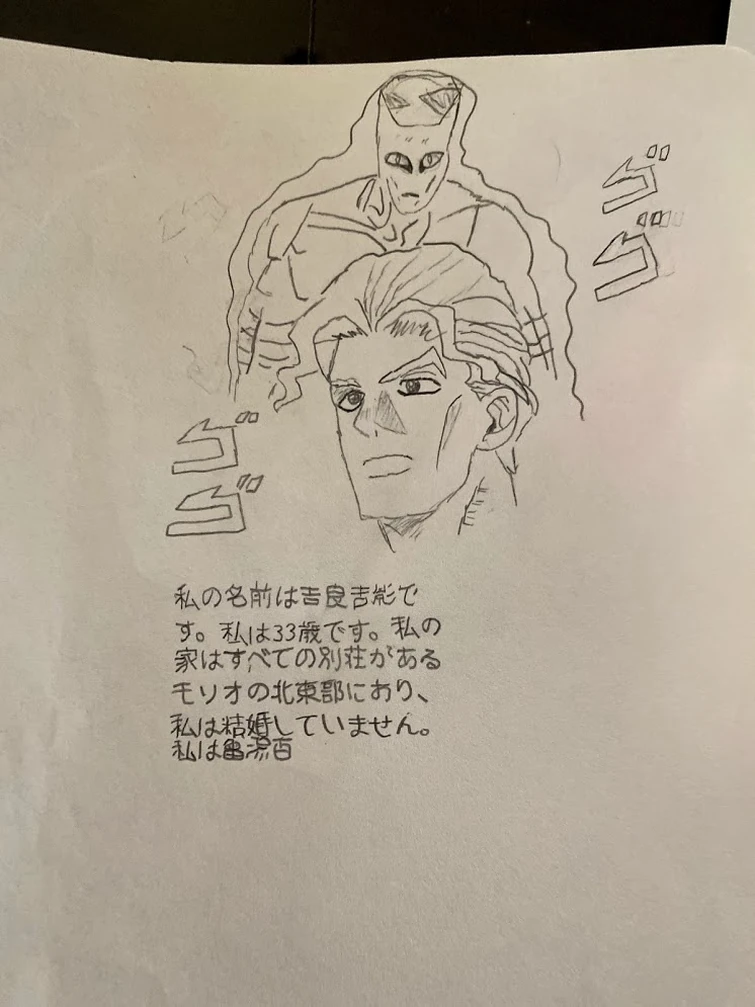 ゴ
ゴ
ゴ
ゴ
私の名前は吉良吉影で
す。私は33歳です。私の
家はすべての別荘がある
モリオの北東部にあり、
私は結婚していません。
私は亀湯百